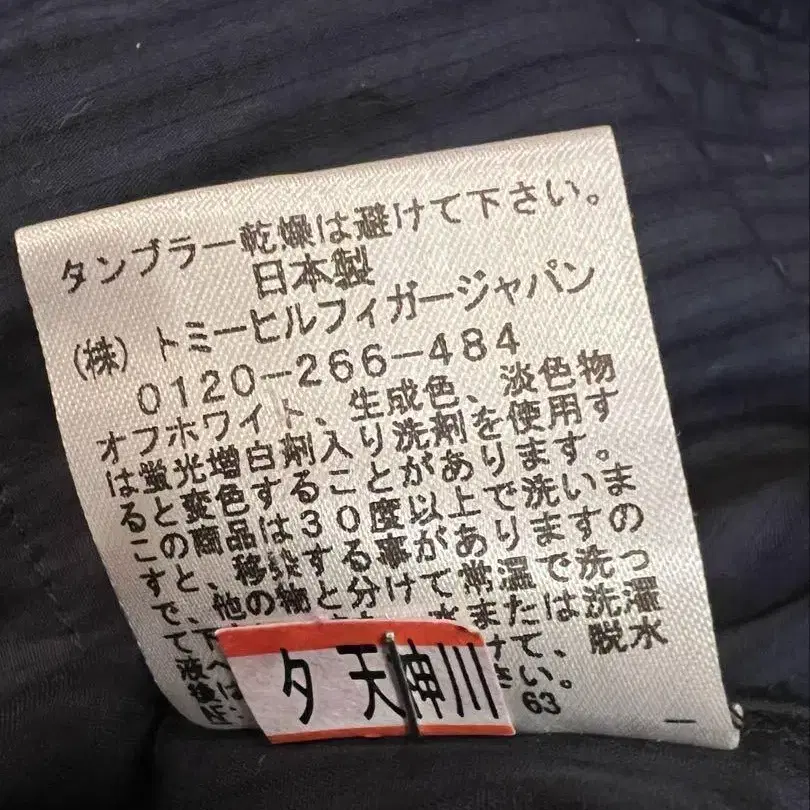 タンブラー乾燥は避けて下さい。
日本製
(株)トミーヒルフィガージャパン
0120-266-484
オフホワイト、生成色、淡色物
は蛍光増白剤入り洗剤を使用す
ると変色することがあります。
この商品は30度以上で洗いま
すと、移染する事がありますの
で、他の物と分けて常温で洗っ
て下 水または洗濯
液 て、脱水
後 い。
63
タ 天神川